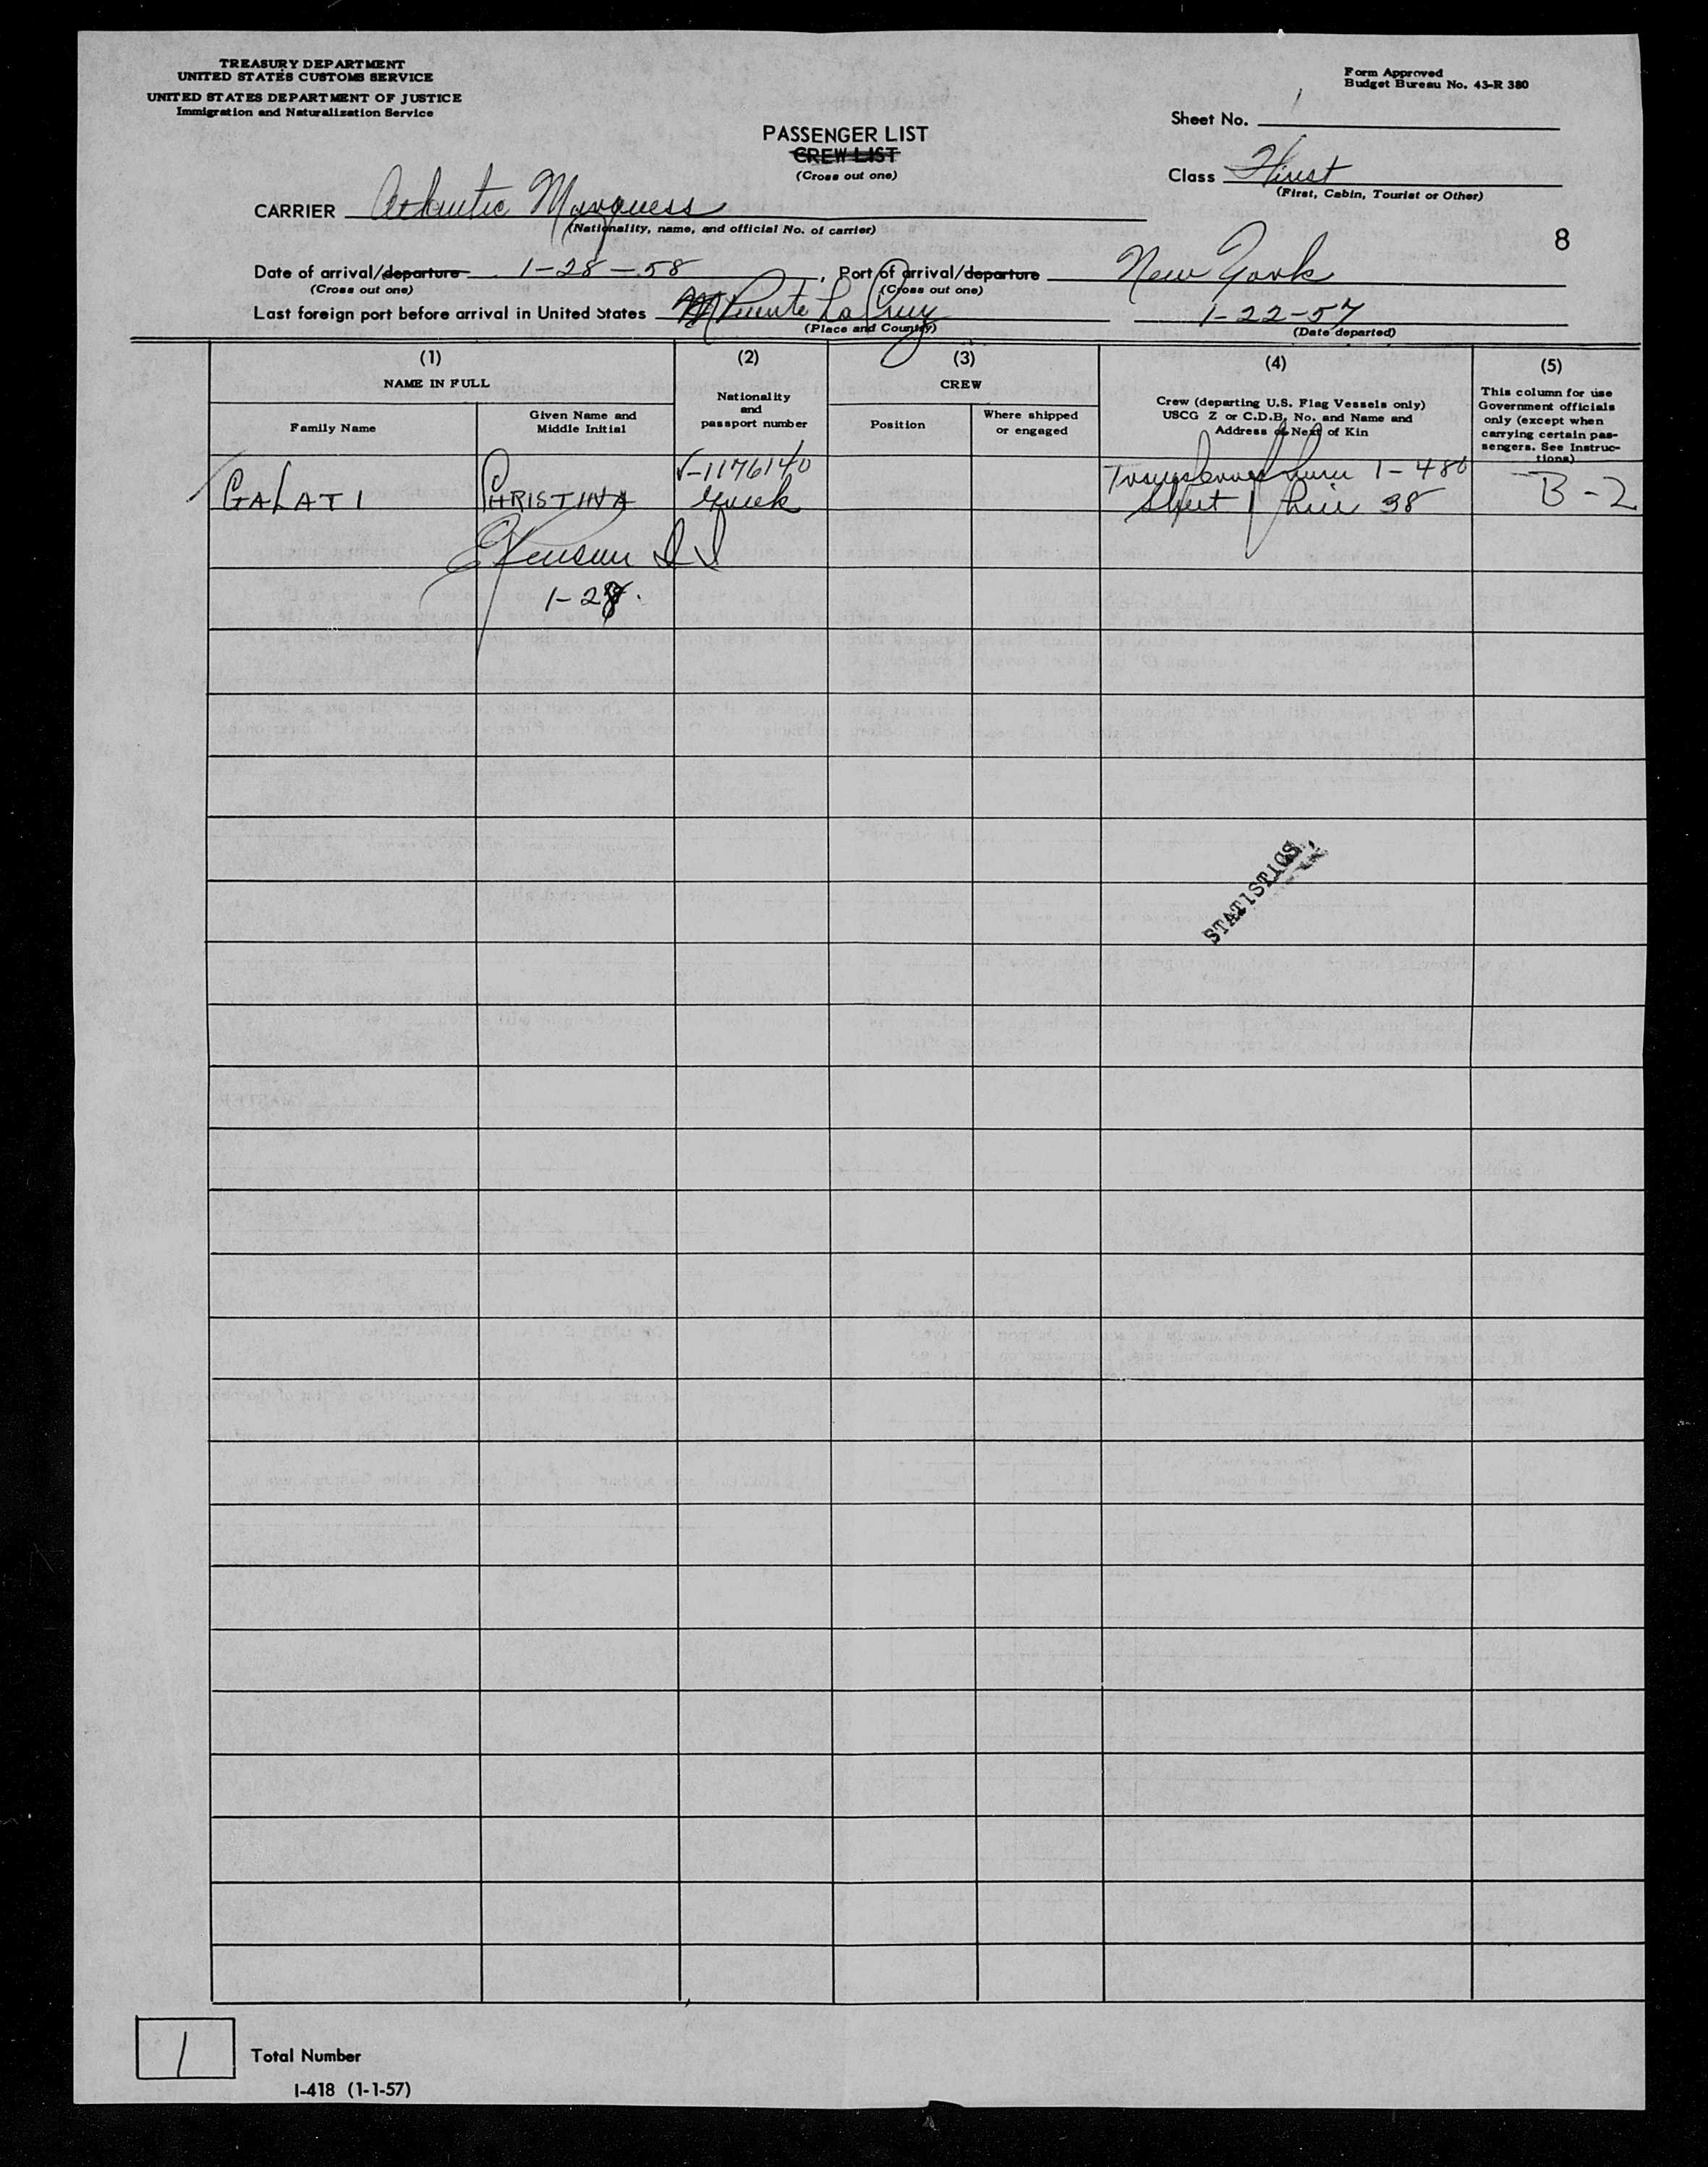 TREASURY DEPARTMENT
UNITED STATES CUSTOMS SERVICE
UNITED STATES DEPARTMENT OF JUSTICE
Immigration and Naturalization Service
Form Approved
Budget Bureau No. 43-R 380
Sheet No. 1
PASSENGER LIST
CREW LIST
(Cross out one)
Class First
(First, Cabin, Tourist or Other)
CARRIER Atlantic Marquess
(Nationality, name, and official No. of carrier)
8
Date of arrival/departure 1-28-58, Port of arrival/departure New York
(Cross out one) (Cross out one)
Last foreign port before arrival in United States Puente La Cruz 1-22-57
(Place and Country) (Date departed)
(1) (2) (3) (4) (5)
NAME IN FULL
Family Name
Given Name and
Middle Initial
Nationality
and
passport number
CREW
Position
Where shipped
or engaged
Crew (departing U.S. Flag Vessels only)
USCG Z or C.D.B. No. and Name and
Address of Next of Kin
This column for use
Government officials
only (except when
carrying certain pas-
sengers. See Instruc-
tions)
V-1176140
GALATI CHRISTINA Greek
Transferred from I-480
Sheet 1 line 38
B-2
1-28.
STATISTICS
1 Total Number
I-418 (1-1-57)